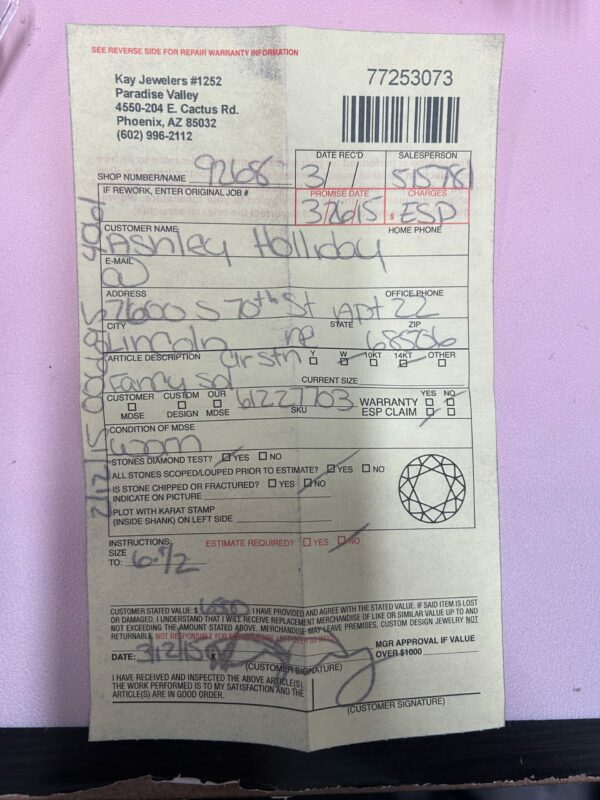 SEE REVERSE SIDE FOR REPAIR WARRANTY INFORMATION
Kay Jewelers #1252
Paradise Valley
4550-204 E. Cactus Rd.
Phoenix, AZ 85032
(602) 996-2112
77253073
DATE REC'D SALESPERSON
SHOP NUMBER/NAME 9268 3/ / 515781
IF REWORK, ENTER ORIGINAL JOB # PROMISE DATE CHARGES
3/26/15 $ ESP
CUSTOMER NAME HOME PHONE
Ashley Holliday
E-MAIL
@
ADDRESS OFFICE PHONE
7600 S 70th St Apt 22
CITY STATE ZIP
Lincoln ne 68506
ARTICLE DESCRIPTION Clr Stn Y W 10KT 14KT OTHER
Fanny Sol CURRENT SIZE
CUSTOMER MDSE CUSTOM DESIGN OUR MDSE 61227703 SKU WARRANTY YES NO
ESP CLAIM
CONDITION OF MDSE
worn
STONES DIAMOND TEST? YES NO
ALL STONES SCOPED/LOUPED PRIOR TO ESTIMATE? YES NO
IS STONE CHIPPED OR FRACTURED? YES NO
INDICATE ON PICTURE
PLOT WITH KARAT STAMP
(INSIDE SHANK) ON LEFT SIDE
2/12/15
INSTRUCTIONS: ESTIMATE REQUIRED? YES NO
SIZE
TO: 6 1/2
CUSTOMER STATED VALUE: $ I HAVE PROVIDED AND AGREE WITH THE STATED VALUE. IF SAID ITEM IS LOST
OR DAMAGED, I UNDERSTAND THAT I WILL RECEIVE REPLACEMENT MERCHANDISE OF LIKE OR SIMILAR VALUE UP TO AND
NOT EXCEEDING THE AMOUNT STATED ABOVE. MERCHANDISE MAY LEAVE PREMISES. CUSTOM DESIGN JEWELRY NOT
RETURNABLE. NOT RESPONSIBLE FOR MERCHANDISE LEFT OVER 60 DAYS
DATE: 3/12/15 X MGR APPROVAL IF VALUE
OVER $1000
(CUSTOMER SIGNATURE)
I HAVE RECEIVED AND INSPECTED THE ABOVE ARTICLE(S).
THE WORK PERFORMED IS TO MY SATISFACTION AND THE
ARTICLE(S) ARE IN GOOD ORDER.
(CUSTOMER SIGNATURE)